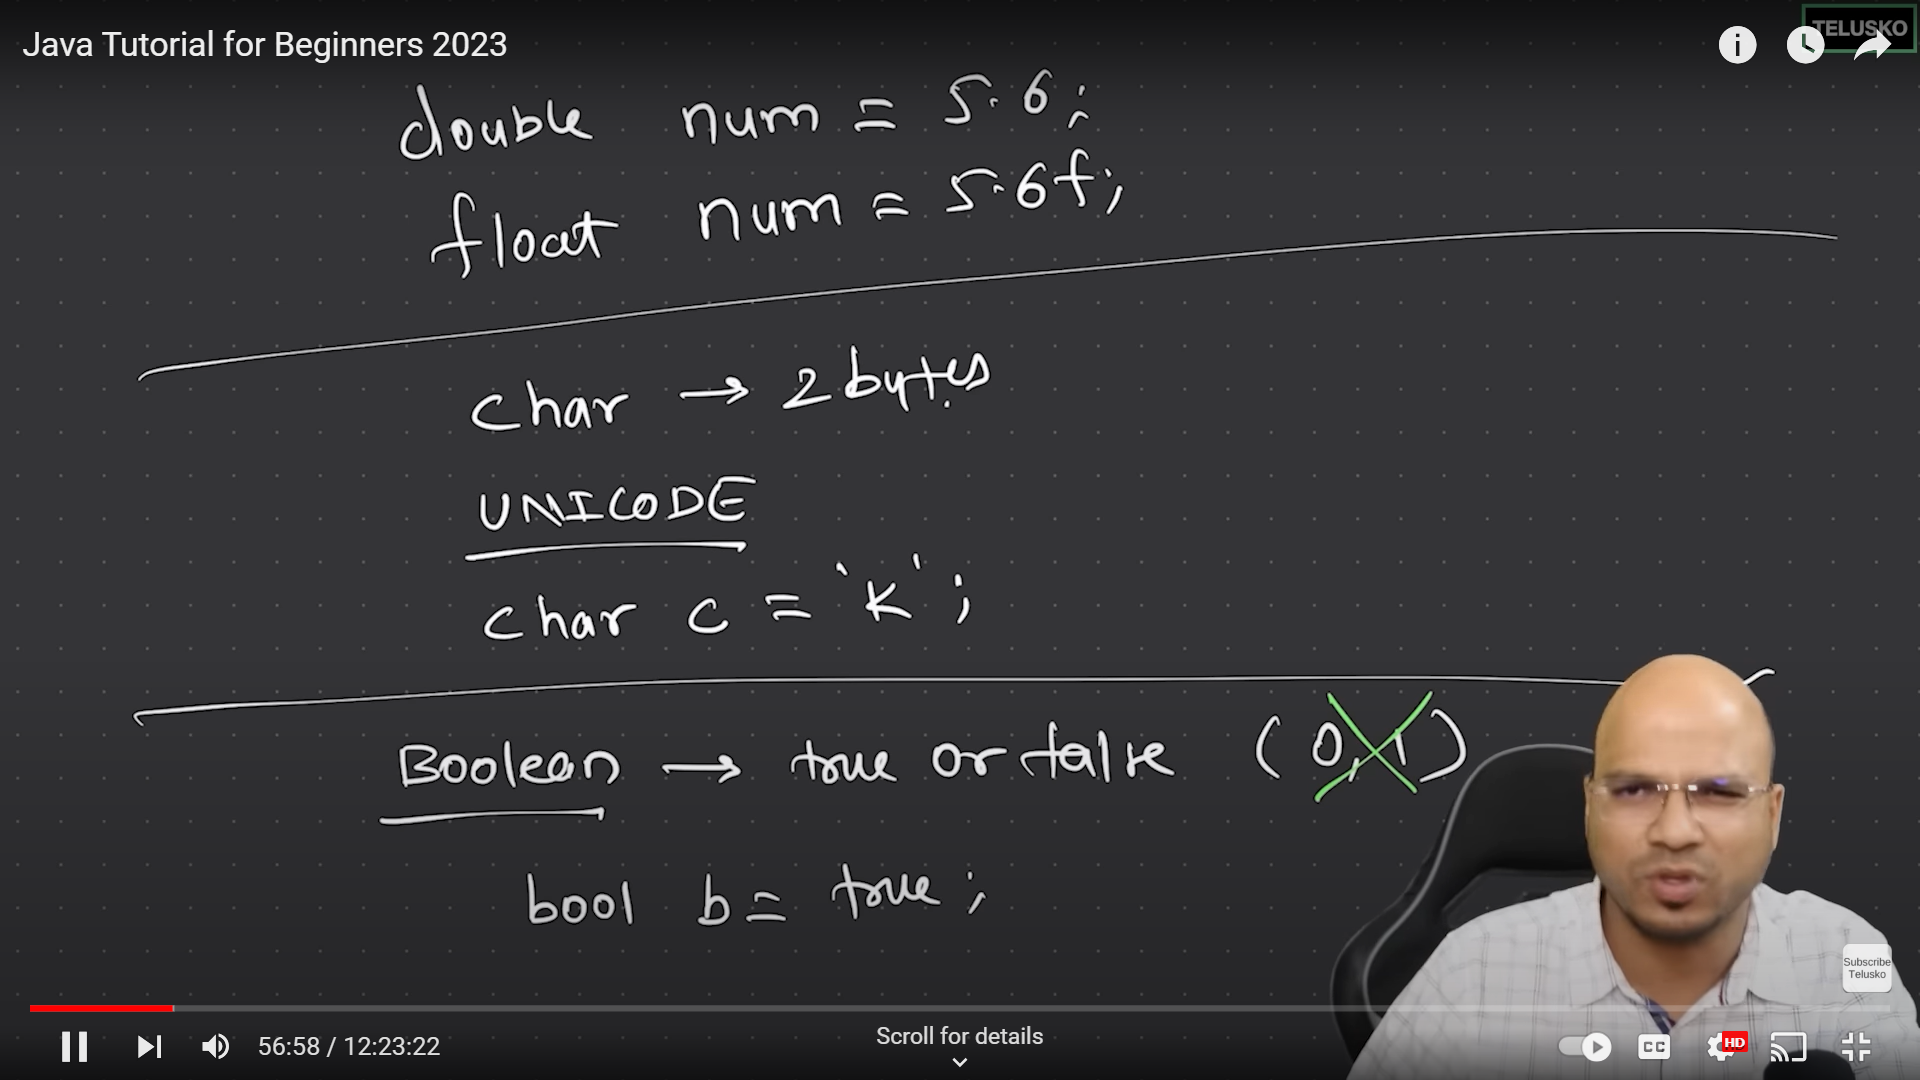 Java Tutorial for Beginners 2023
TELUSKO
double num = 5.6;
float num = 5.6f;
char → 2 bytes
UNICODE
char c = 'k';
Boolean → true or false (0,1)
bool b = true;
Subscribe
Telusko
56:58 / 12:23:22
Scroll for details
CC
HD